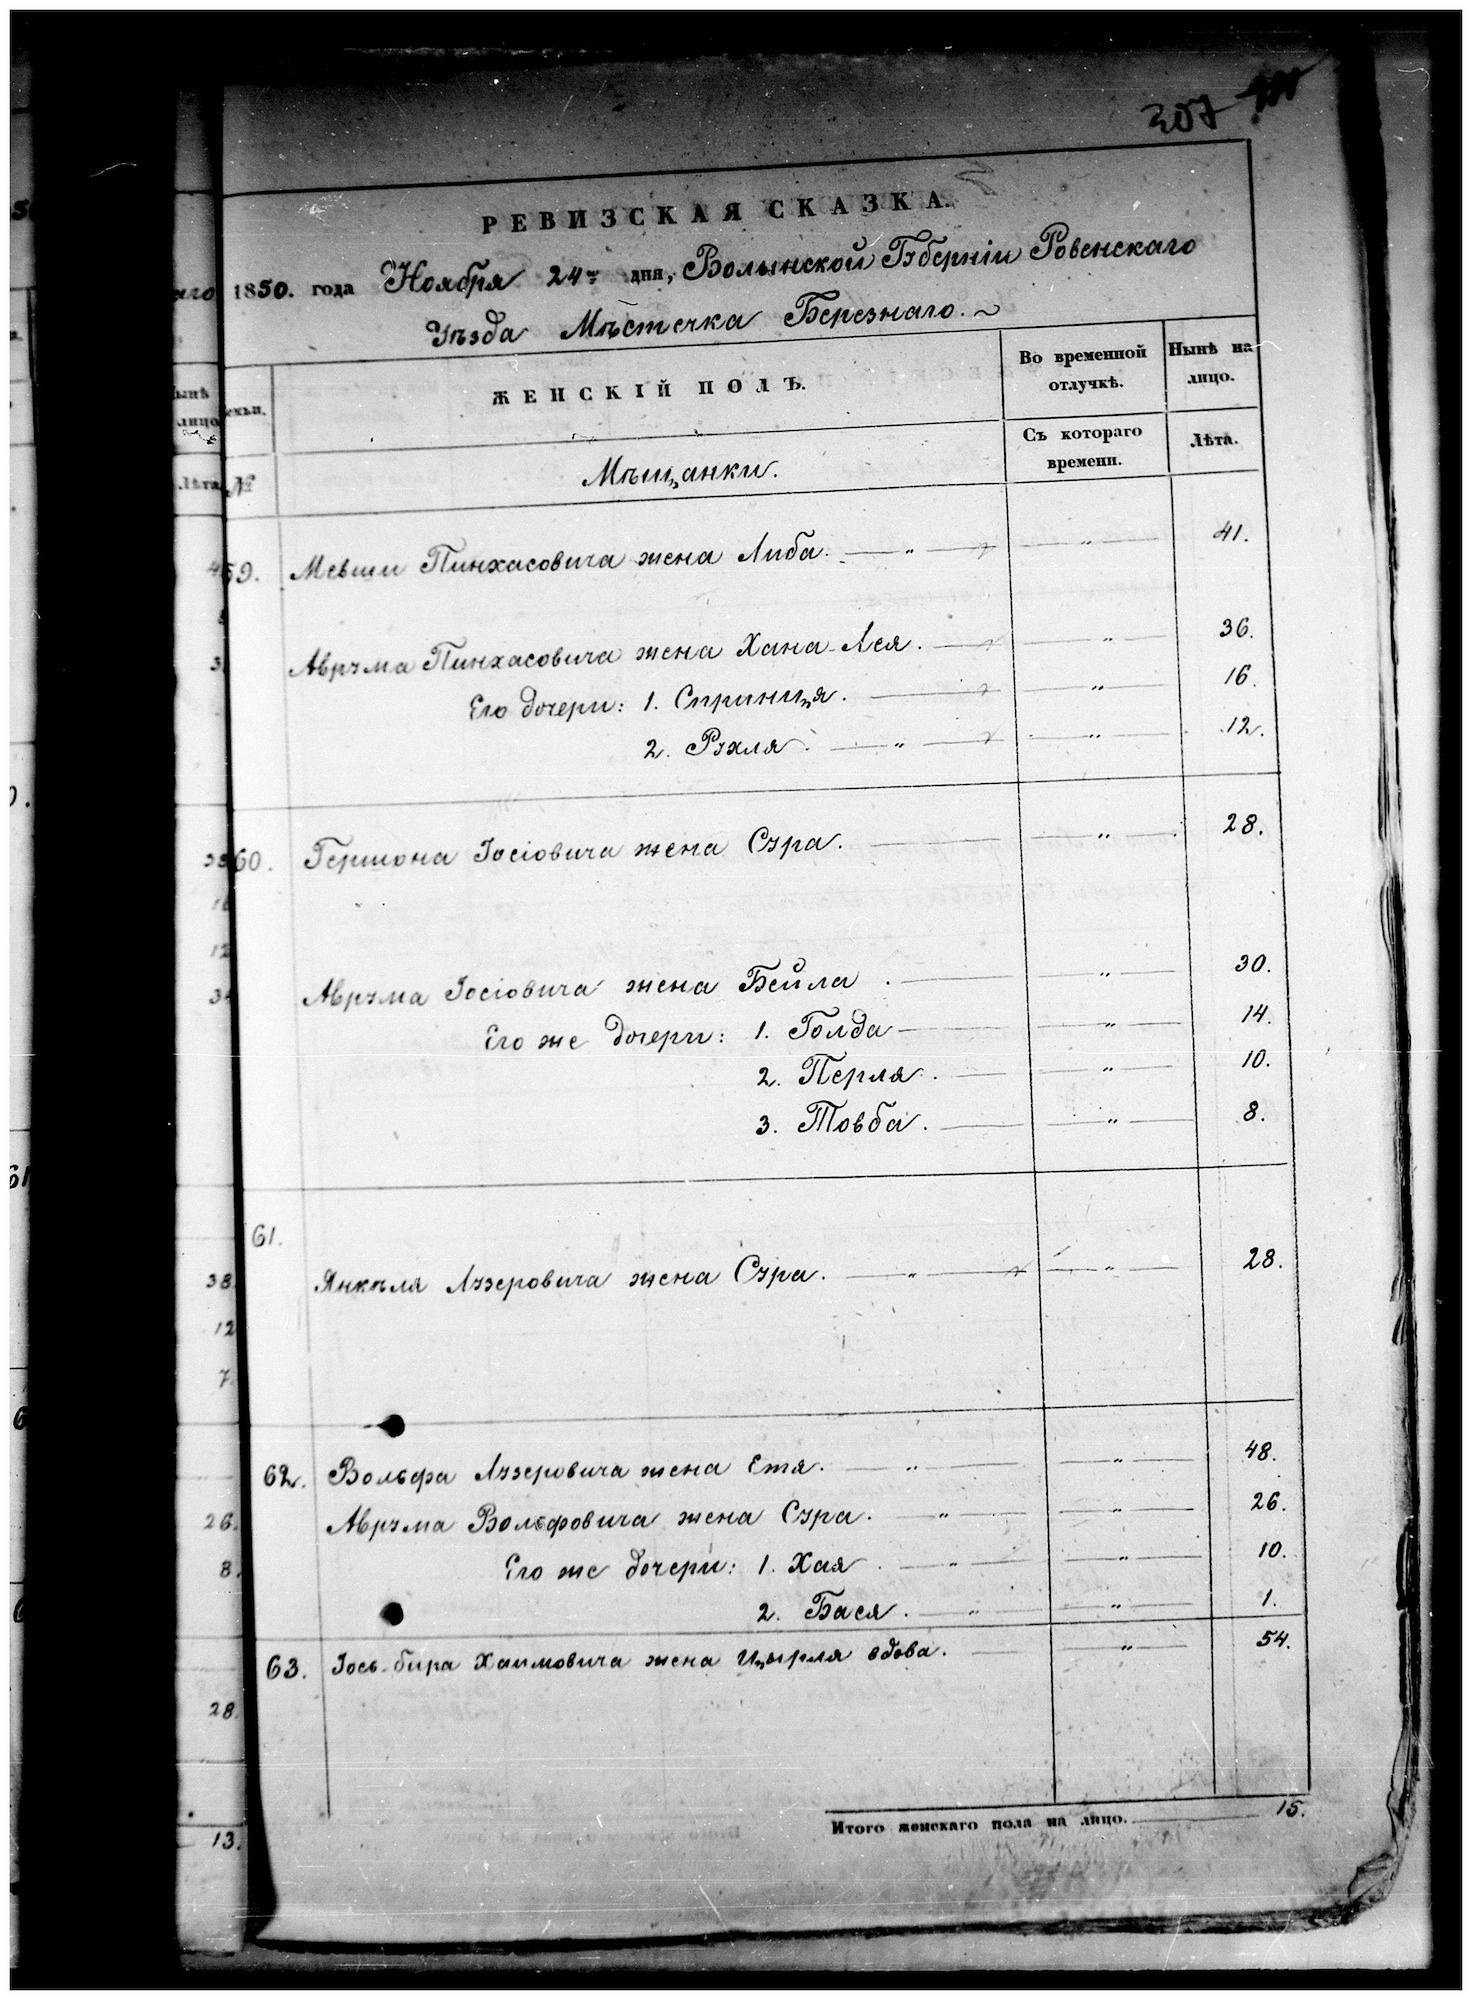 307
РЕВИЗСКАЯ СКАЗКА.
1850. года Ноября 24го дня, Волынской Губерніи Ровенскаго
Уѣзда Мѣстечка Березнаго.
ЖЕНСКІЙ ПОЛЪ.
Во временной отлучкѣ.
Нынѣ на лицо.
№
Мѣщанки.
Съ котораго времени.
Лѣта.
59. Мевши Пинхасовича жена Либа. — " — " — 41.
Аврума Пинхасовича жена Хана-Лея. — " — 36.
Его дочери: 1. Сприница. — " — 16.
2. Рухля. — " — " — 12.
60. Гершона Іосіовича жена Сура. — " — 28.
Аврума Іосіовича жена Бейла. — " — 30.
Его же дочери: 1. Голда — " — 14.
2. Перля. — " — 10.
3. Товба. — " — 8.
61.
Янкеля Лузеровича жена Сура. — " — " — 28.
62. Вольфа Лузеровича жена Етя. — " — " — 48.
Аврума Вольфовича жена Сура. — " — " — 26.
Его же дочери: 1. Хая. — " — " — 10.
2. Бася. — " — " — 1.
63. Іось-бира Хаимовича жена Цырля вдова. — " — 54.
Итого женскаго пола на лицо. 15.